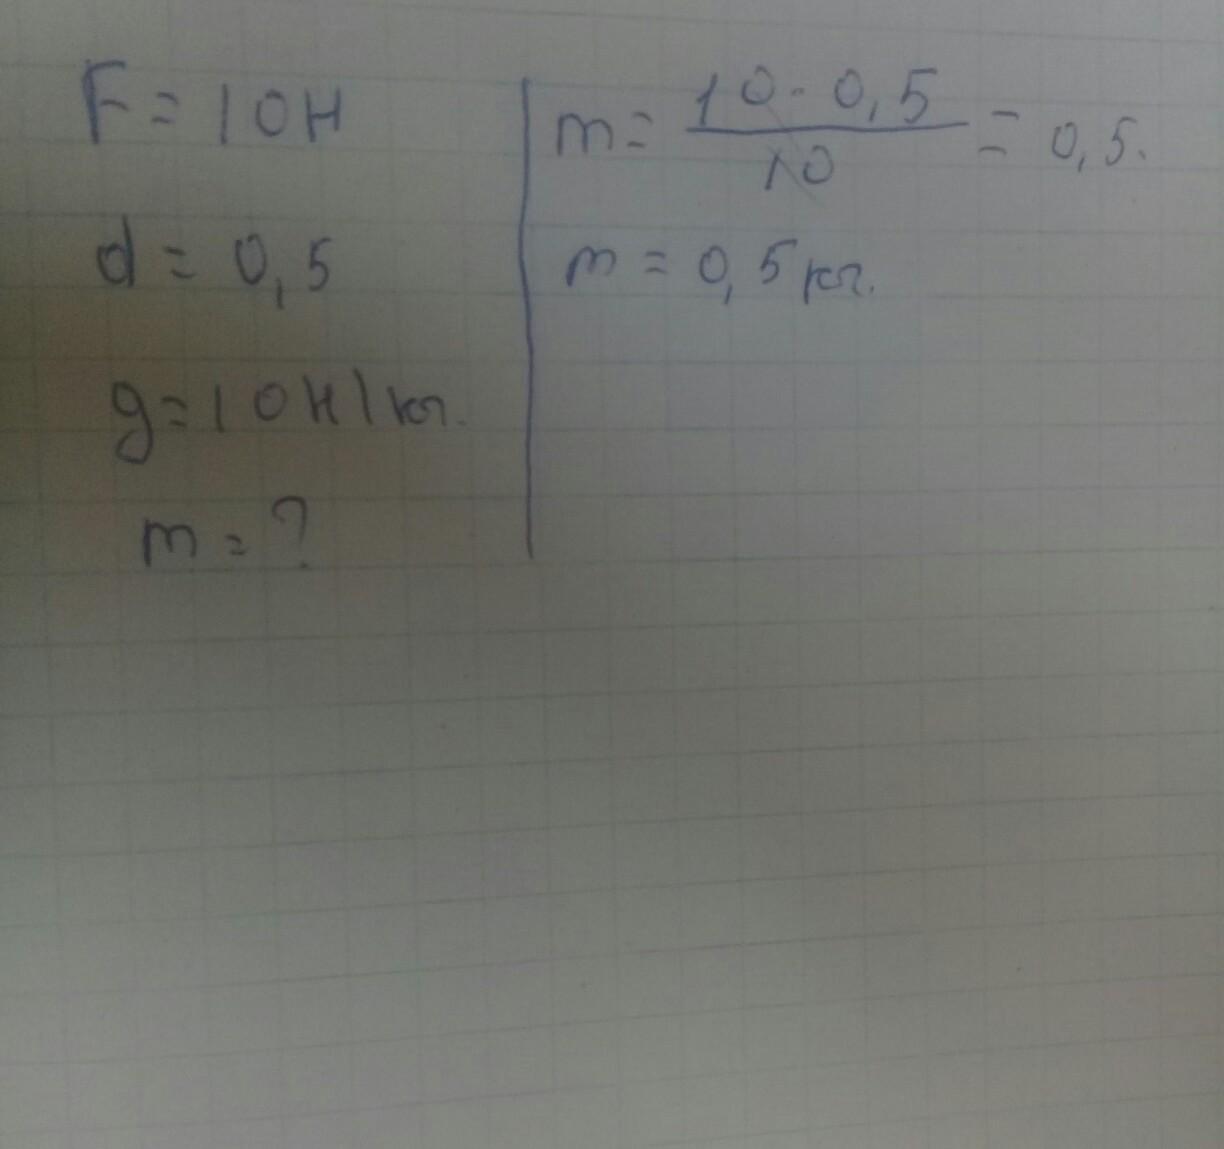 F = 10Н
d = 0,5
g = 10Н/кг.
m = ?
m = 10 · 0,5 / 10 = 0,5.
m = 0,5 кг.